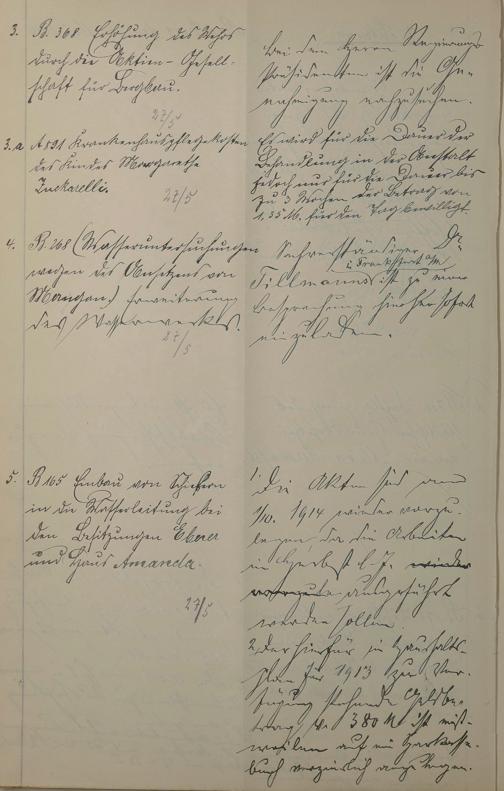 3. B. 368 Erhöhung des Wehrs
durch die Aktien-Gesell-
schaft für Bergbau.
27/5
Bei dem Herrn Regierungs
Präsidenten ist die Ge-
nehmigung nachzusuchen.
3.a A 521 Krankenhauspflegekosten
des Kindes Margarethe
27/5
Es wird für die Dauer der
Behandlung in der Anstalt
jedoch nur für die Dauer bis
zu 3 Wochen der Betrag von
1,35 M. für den Tag bewilligt.
4. B. 268 (Wasseruntersuchungen
wegen des Absetzens von
Mangan) Erweiterung
des Wasserwerkes.
27/5
Sachverständiger Dr.
i/ Frankfurt a/M
Tillmanns ist zu einer
Besprechung hierher sofort
einzuladen.
5. B 165 Einbau von Schiebern
in die Wasserleitung bei
den Besitzungen Eberer
und Haus Amanda.
27/5
1. Die Akten sind am
1/10. 1914 wieder vorzu-
legen, da die Arbeiten
im Herbst d. J. wieder
ausgeführt
werden sollen.
2. Der hierfür im Haushalts-
plan für 1913 zur Ver-
fügung stehende Geldbe-
trag 380 M ist einst-
weilen auf ein Sparkassen-
buch verzinslich anzulegen.